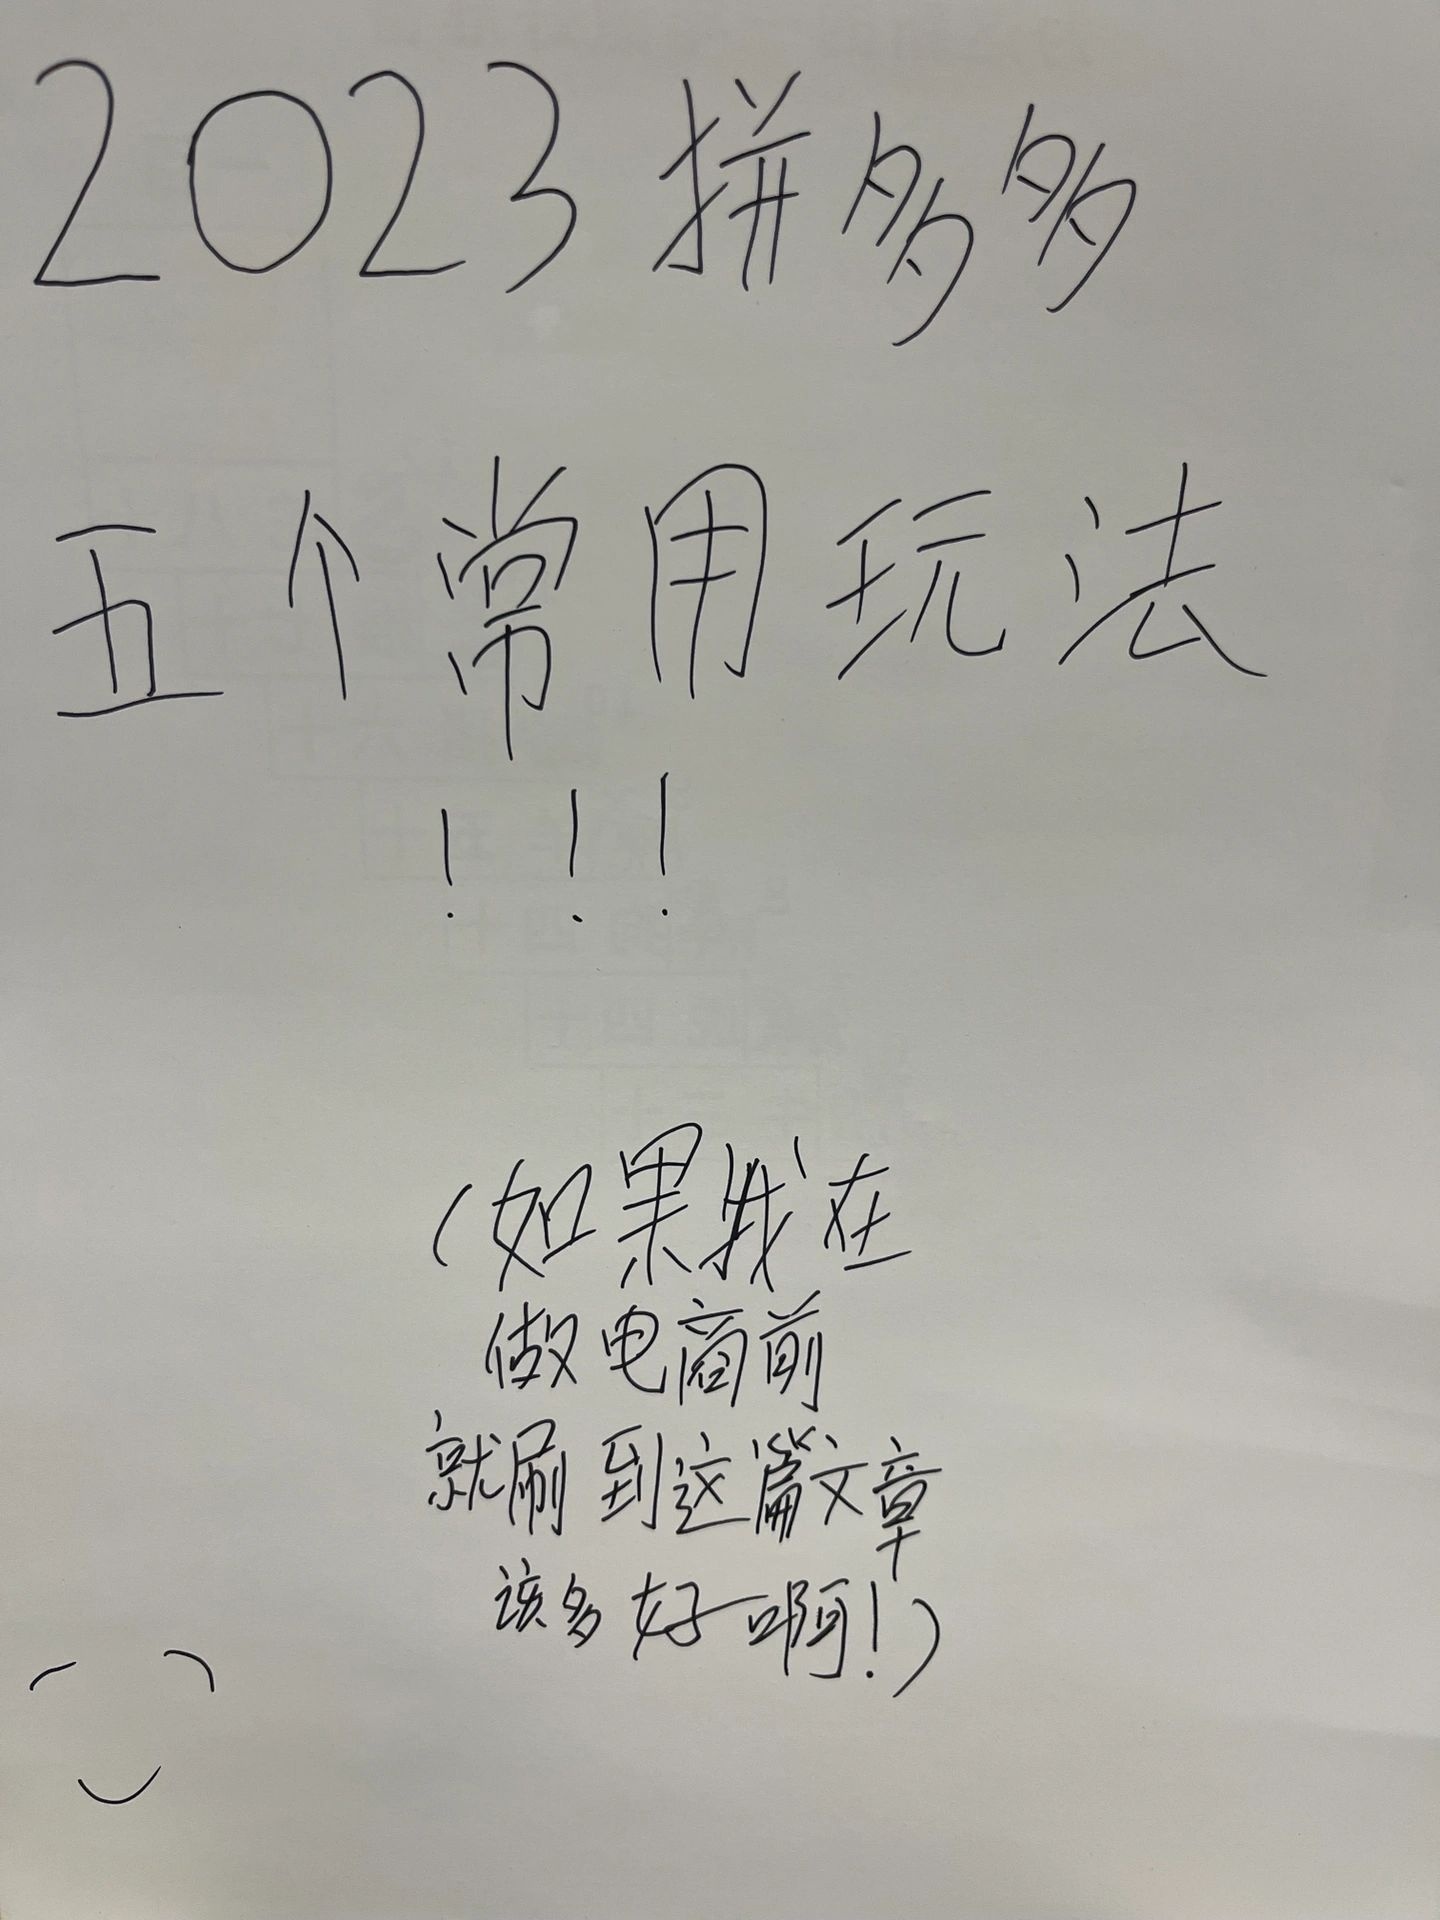 2023拼多多
五个常用玩法
！！！
（如果我在
做电商前
就刷到这篇文章
该多好啊！）